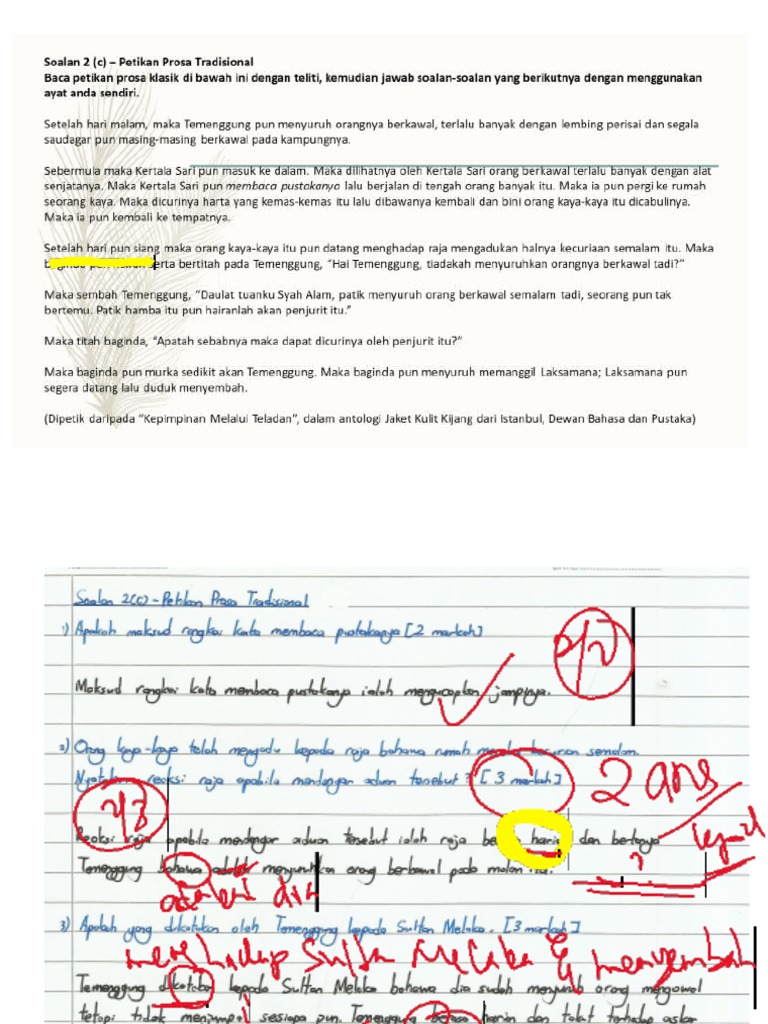 Soalan 2 (c) – Petikan Prosa Tradisional
Baca petikan prosa klasik di bawah ini dengan teliti, kemudian jawab soalan-soalan yang berikutnya dengan menggunakan
ayat anda sendiri.
Setelah hari malam, maka Temenggung pun menyuruh orangnya berkawal, terlalu banyak dengan lembing perisai dan segala
saudagar pun masing-masing berkawal pada kampungnya.
Sebermula maka Kertala Sari pun masuk ke dalam. Maka dilihatnya oleh Kertala Sari orang berkawal terlalu banyak dengan alat
senjatanya. Maka Kertala Sari pun membaca pustakanya lalu berjalan di tengah orang banyak itu. Maka ia pun pergi ke rumah
seorang kaya. Maka dicurinya harta yang kemas-kemas itu lalu dibawanya kembali dan bini orang kaya-kaya itu dicabulinya.
Maka ia pun kembali ke tempatnya.
Setelah hari pun siang maka orang kaya-kaya itu pun datang menghadap raja mengadukan halnya kecuriaan semalam itu. Maka
serta bertitah pada Temenggung, “Hai Temenggung, tiadakah menyuruhkan orangnya berkawal tadi?”
Maka sembah Temenggung, “Daulat tuanku Syah Alam, patik menyuruh orang berkawal semalam tadi, seorang pun tak
bertemu. Patik hamba itu pun hairanlah akan penjurit itu.”
Maka titah baginda, “Apatah sebabnya maka dapat dicurinya oleh penjurit itu?”
Maka baginda pun murka sedikit akan Temenggung. Maka baginda pun menyuruh memanggil Laksamana; Laksamana pun
segera datang lalu duduk menyembah.
(Dipetik daripada “Kepimpinan Melalui Teladan”, dalam antologi Jaket Kulit Kijang dari Istanbul, Dewan Bahasa dan Pustaka)
Soalan 2(c) - Petikan Prosa Tradisional
1) Apakah maksud rangkai kata membaca pustakanya [2 markah]
2/2
Maksud rangkai kata membaca pustakanya ialah mengucapkan jampinya.
2) Orang kaya-kaya telah mengadu kepada raja bahawa rumah kecurian semalam.
Nyatakan reaksi raja apabila mendengar aduan tersebut? [3 markah]
2 ans
2/3
Reaksi raja apabila mendengar aduan tersebut ialah raja hairan dan bertanya
Temenggung bahawa adakah menyuruhkan orang berkawal pada malam itu.
?
adakah dia
3) Apakah yang dikatakan oleh Temenggung kepada Sultan Melaka. [3 markah]
menghadap Sultan Melaka & menyembah
Temenggung dikatakan kepada Sultan Melaka bahawa dia sudah menyuruh orang mengawal
tetapi tidak menjumpai sesiapa pun. Temenggung hairan dan takut terhadap